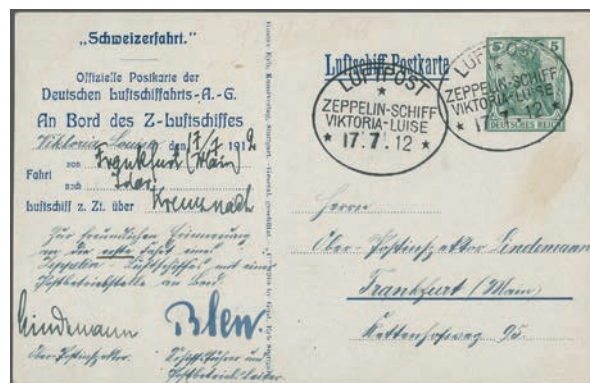 „Schweizerfahrt.“
Offizielle Postkarte der
Deutschen Luftschiffahrts-A.-G.
An Bord des Z-Luftschiffes
Viktoria Louise, den 17/7 1912
von Frankfurt (Main)
Fahrt
nach
Luftschiff z. Zt. über Kreuznach
Zur freundlichen Erinnerung
an die erste Fahrt eines
Zeppelin-Luftschiffes mit einer
Postbetriebsstelle an Bord.
Lindemann
Ober-Postinspektor.
Luftschiff-Postkarte
LUFTPOST
ZEPPELIN-SCHIFF
VIKTORIA-LUISE
★ 17.7.12 ★
LUFTPOST
ZEPPELIN-SCHIFF
VIKTORIA-LUISE
★ 17.7.12 ★
5 5
DEUTSCHES REICH
Herrn
Ober-Postinspektor Lindemann
Frankfurt (Main)
Kettenhofweg 95.